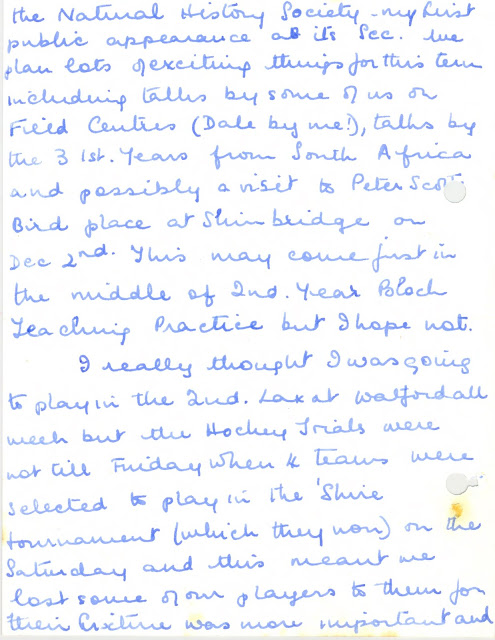 the Natural History Society - my first
public appearance as its Sec. We
plan lots of exciting things for this term
including talks by some of us on
Field Centres (Dale by me!), talks by
the 3 1st. Years from South Africa
and possibly a visit to Peter Scott
Bird place at Slimbridge on
Dec 2nd. This may come just in
the middle of 2nd. Year Block
Teaching Practice but I hope not.
I really thought I was going
to play in the 2nd. Lax at Walford all
week but the Hockey Trials were
not till Friday when 4 teams were
selected to play in the 'Shire
tournament (which they won) on the
Saturday and this meant we
lost some of our players to them for
their fixture was more important and